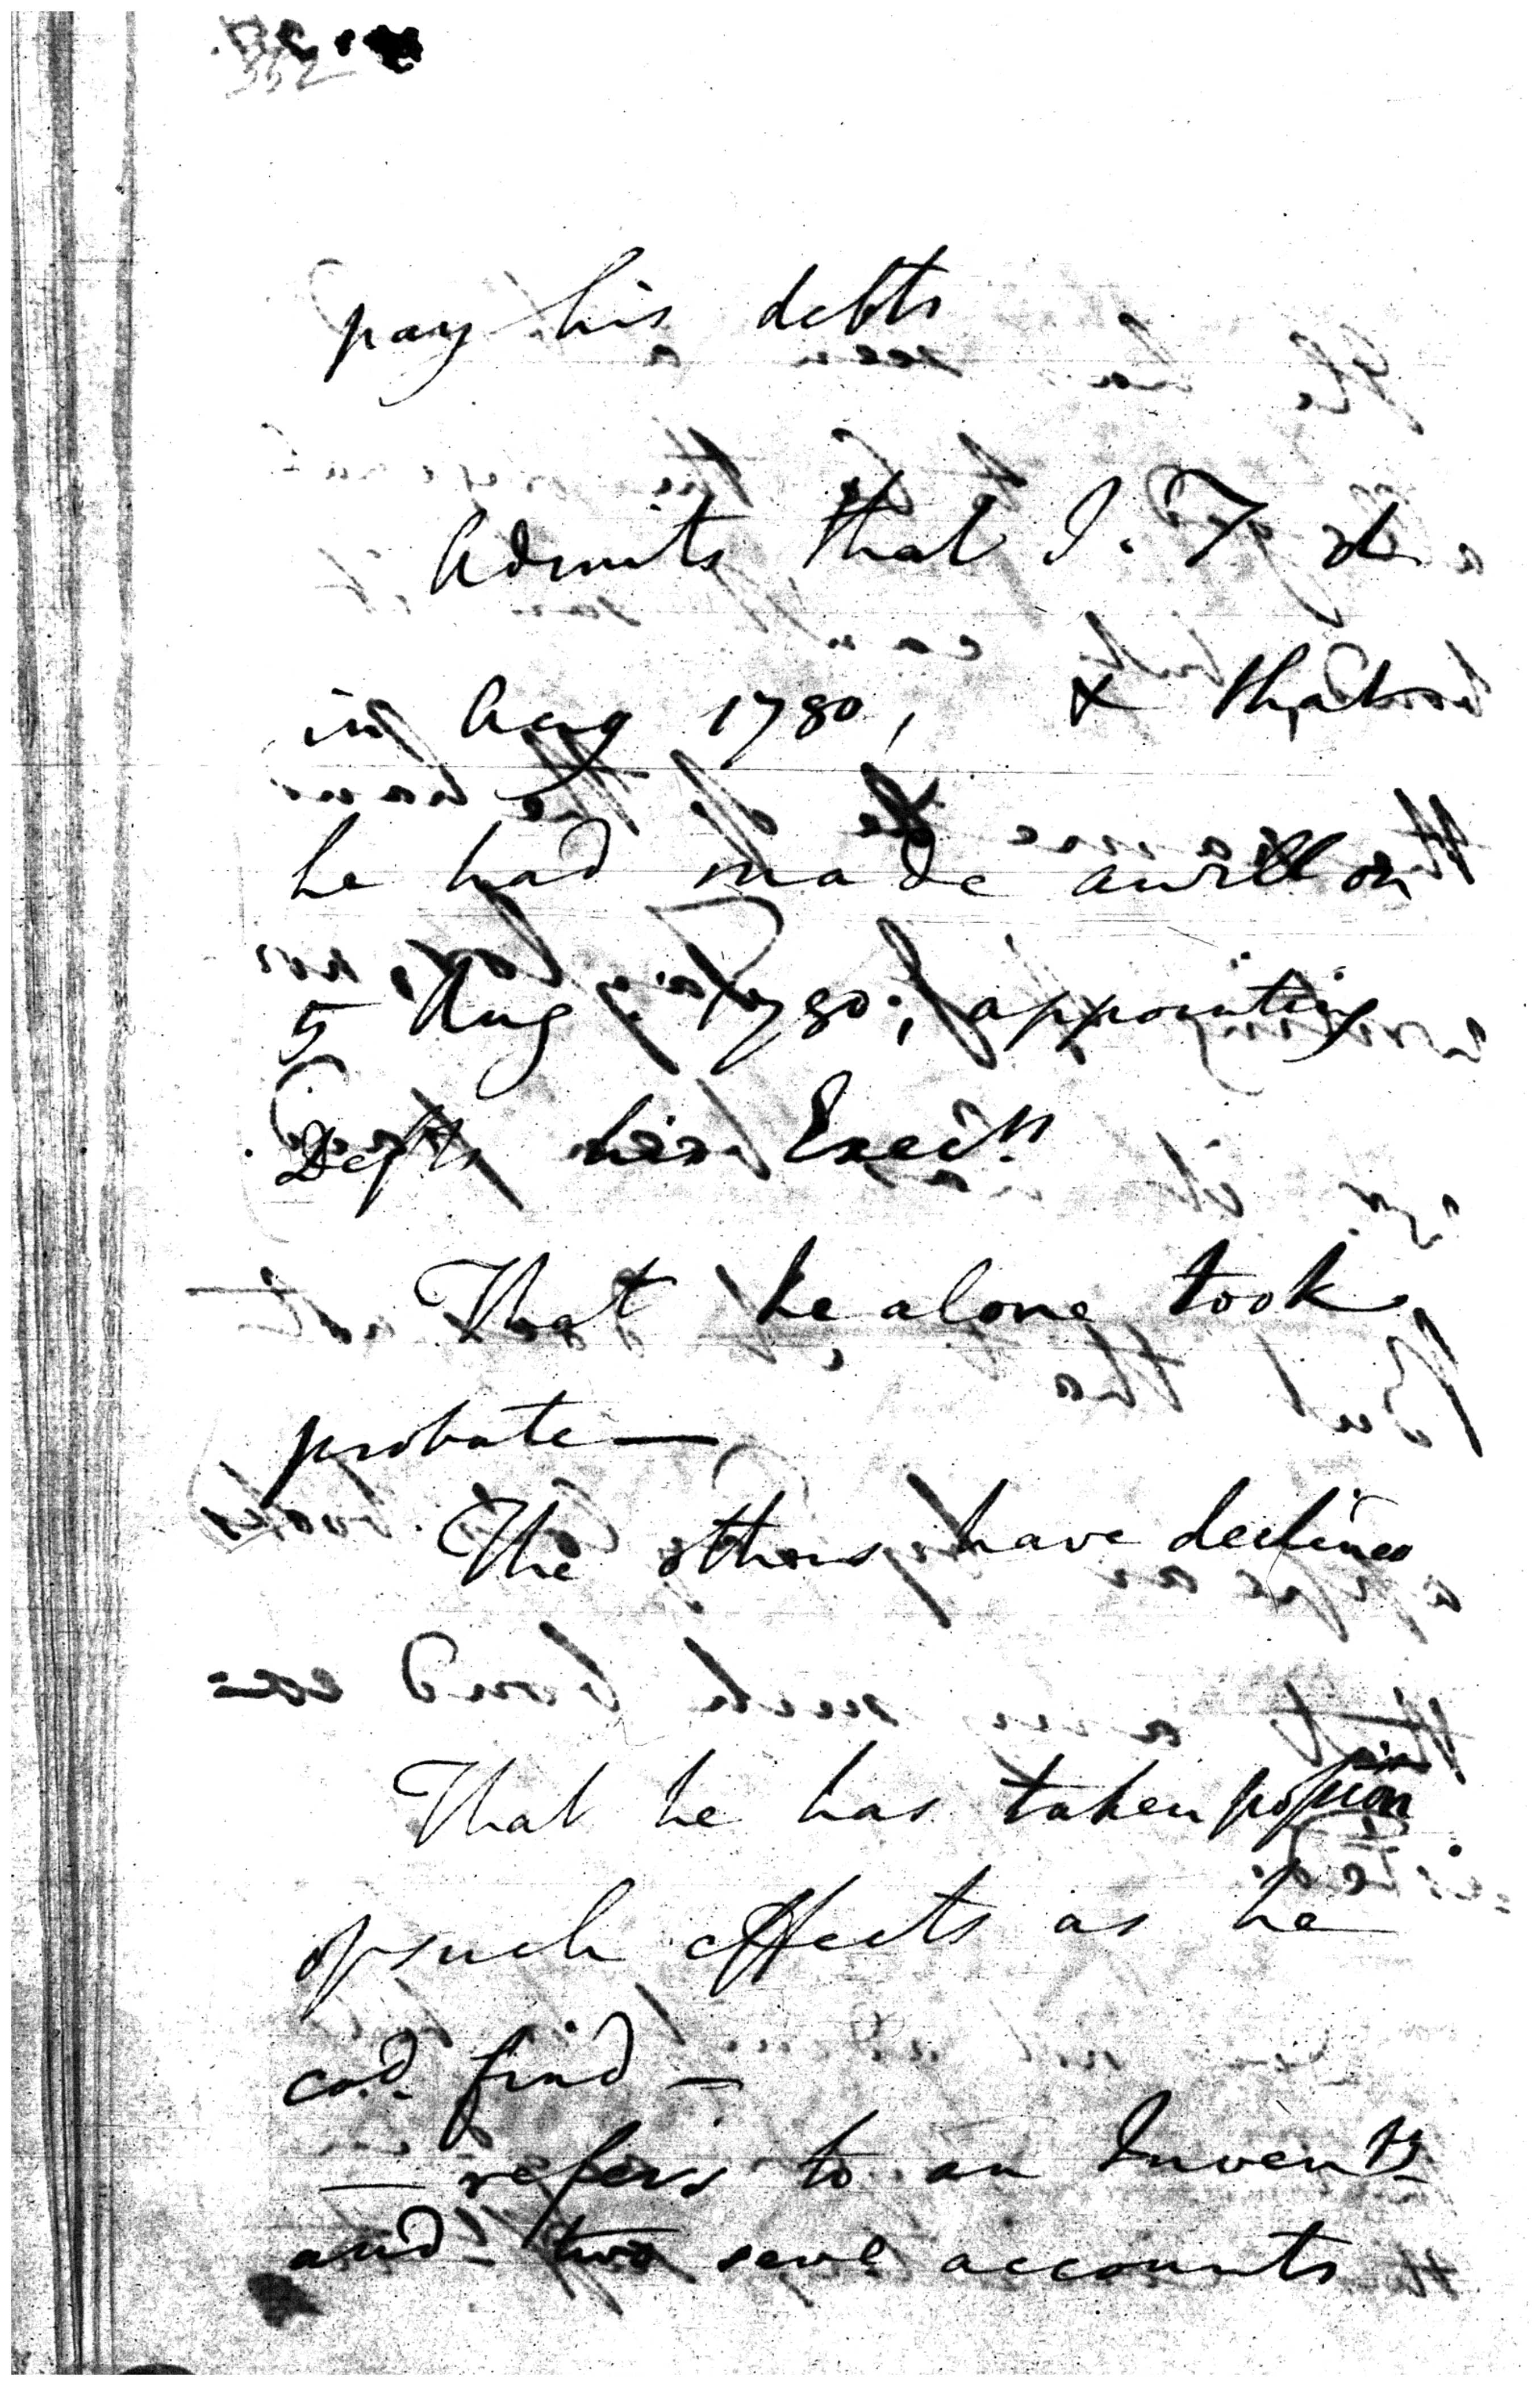 352
pay his debts
Admits that J. T d
in Aug 1780, & that
he had made a will on
5 Aug 1780; appointing
Defts his Execrs
That he alone took
probate —
The others have declined
That he has taken possion
of such effects as he
cod. find —
— refers to an Inventy
and two sevl accounts